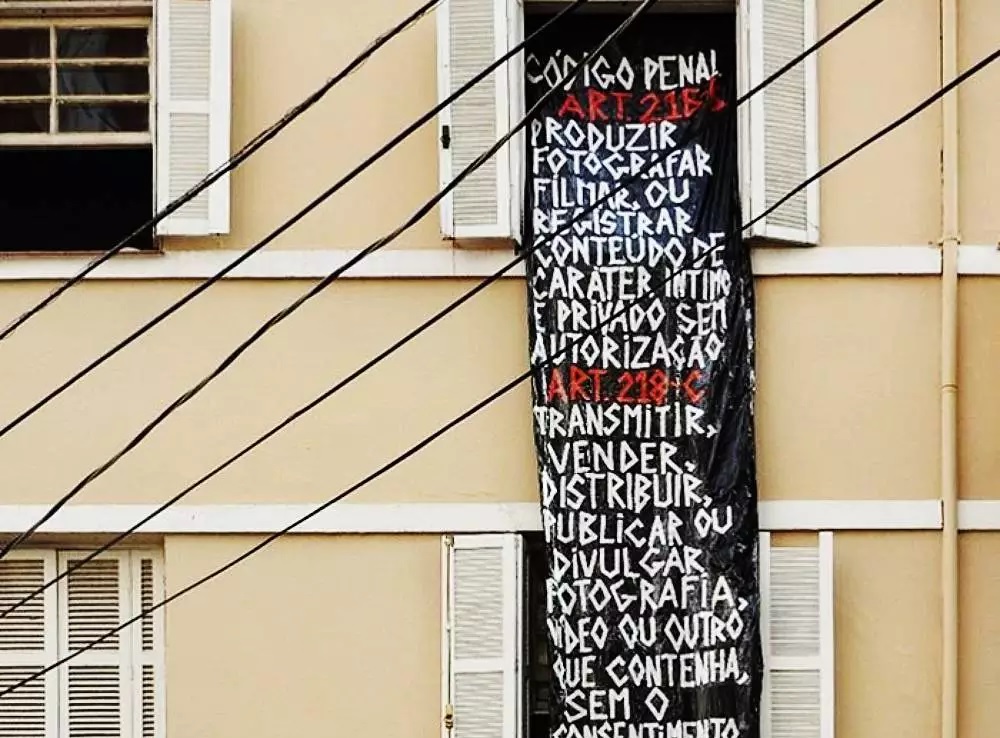 CÓDIGO PENAL
ART. 216-B
PRODUZIR
FOTOGRAFAR
FILMAR, OU
REGISTRAR
CONTEÚDO DE
CARÁTER ÍNTIMO
E PRIVADO SEM
AUTORIZAÇÃO
ART. 218-C
TRANSMITIR,
VENDER,
DISTRIBUIR,
PUBLICAR OU
DIVULGAR
FOTOGRAFIA,
VÍDEO OU OUTRO
QUE CONTENHA,
SEM O
CONSENTIMENTO